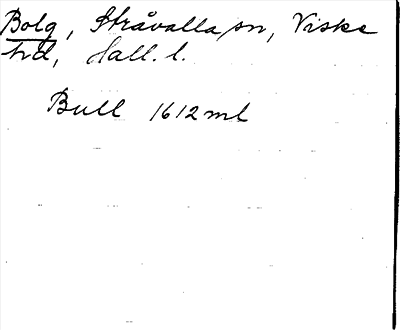 Bolg, Stråvalla sn, Viske
hd, Hall. l.
Bull 1612 ml